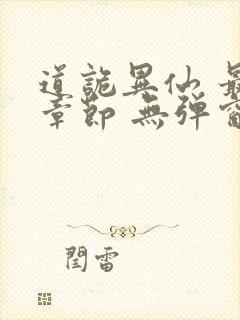 道詭異仙 最
章節 無彈窗
閆雷